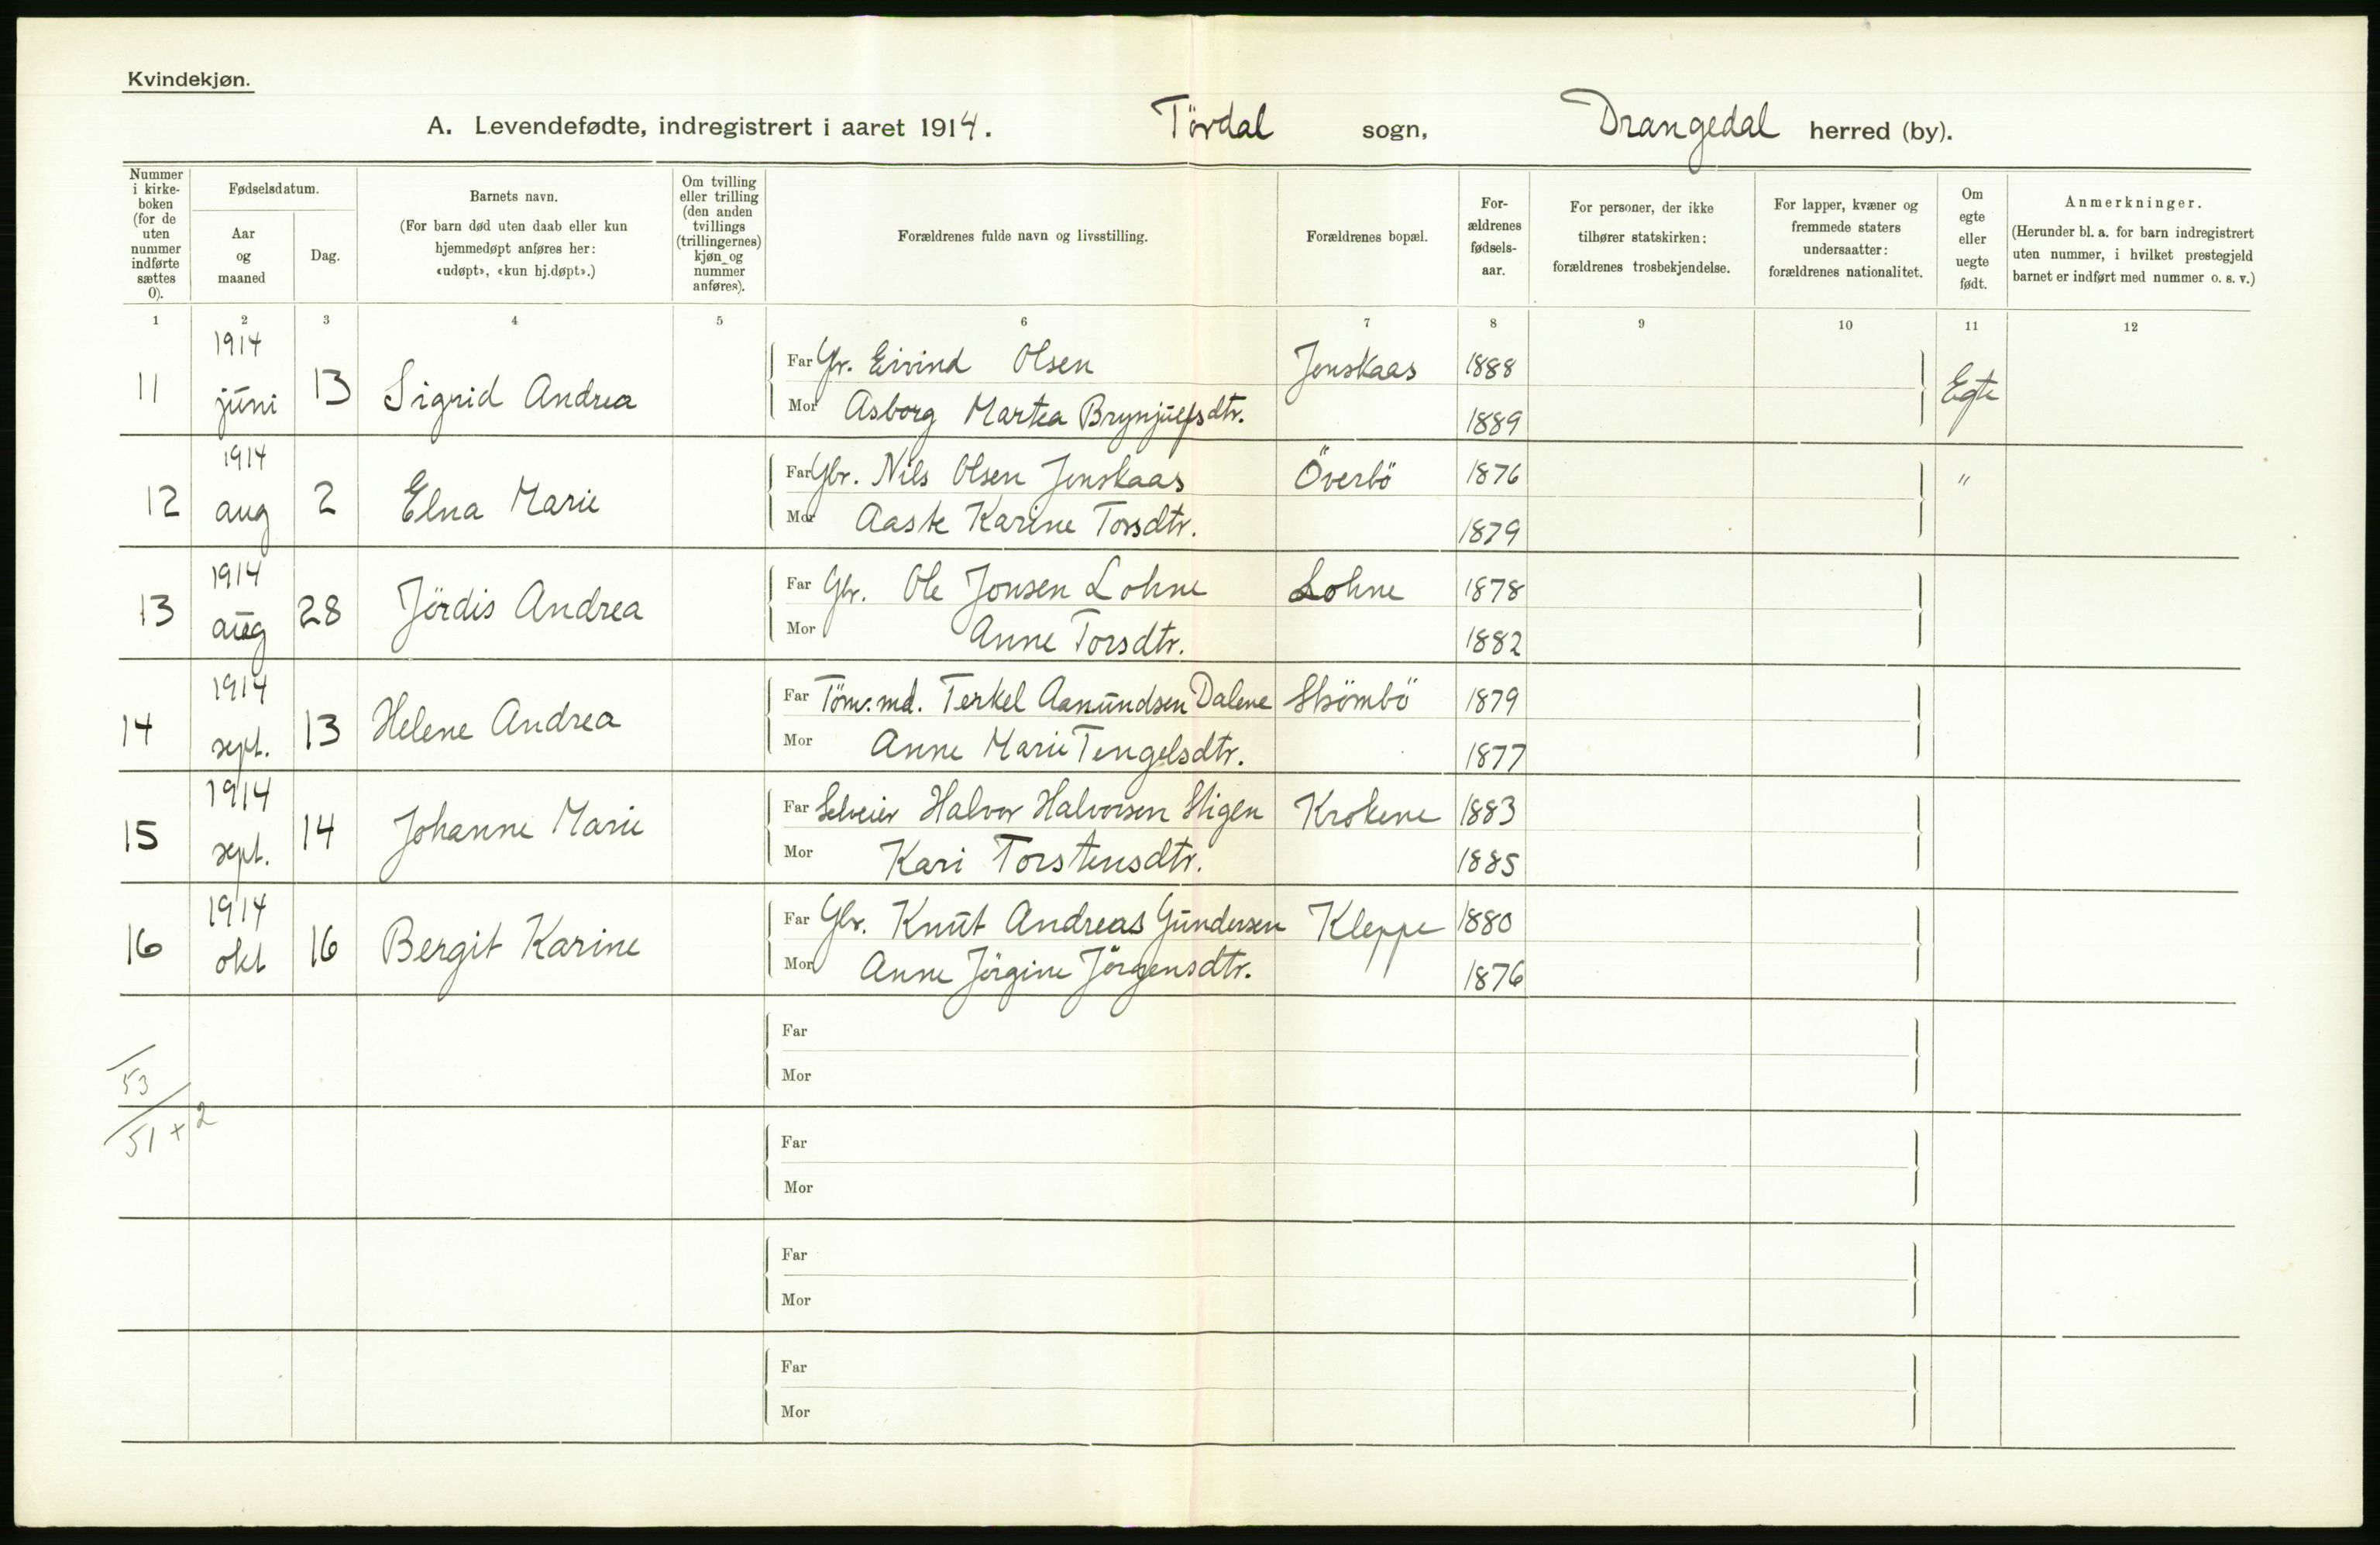 Kvindekjøn.
A. Levendefødte, indregistrert i aaret 1914. Tördal sogn, Drangedal herred (by).
Nummer i kirke-boken (for de uten nummer indførte sættes 0).
Fødselsdatum.
Aar og maaned
Dag.
Barnets navn.
(For barn død uten daab eller kun hjemmedøpt anføres her: «udøpt», «kun hj.døpt».)
Om tvilling eller trilling (den anden tvillings (trillingernes) kjøn og nummer anføres).
Forældrenes fulde navn og livsstilling.
Forældrenes bopæl.
For-ældrenes fødsels-aar.
For personer, der ikke tilhører statskirken: forældrenes trosbekjendelse.
For lapper, kvæner og fremmede staters undersaatter: forældrenes nationalitet.
Om egte eller uegte født.
Anmerkninger.
(Herunder bl. a. for barn indregistrert uten nummer, i hvilket prestegjeld barnet er indført med nummer o. s. v.)
1 2 3 4 5 6 7 8 9 10 11 12
11 1914 juni 13 Sigrid Andrea Far Gr. Eivind Olsen Jenskaas 1888 Egte
Mor Asborg Martea Brynjulfsdtr. 1889
12 1914 aug 2 Elna Marie Far Gbr. Nils Olsen Jenskaas Överbö 1876 "
Mor Aaste Karine Torsdtr. 1879
13 1914 aug 28 Jördis Andrea Far Gbr. Ole Jonsen Lohne Lohne 1878
Mor Anne Torsdtr. 1882
14 1914 sept. 13 Helene Andrea Far Töm.md. Terkel Aanundsen Dalene Strömbö 1879
Mor Anne Marie Tengelsdtr. 1877
15 1914 sept. 14 Johanne Marie Far Selveier Halvor Halvorsen Stigen Krokene 1883
Mor Kari Torstensdtr. 1885
16 1914 okt 16 Bergit Karine Far Gbr. Knut Andreas Gundersen Kleppe 1880
Mor Anne Jörgine Jörgensdtr. 1876
Far
53
Mor
51 + 2
Far
Mor
Far
Mor
Far
Mor